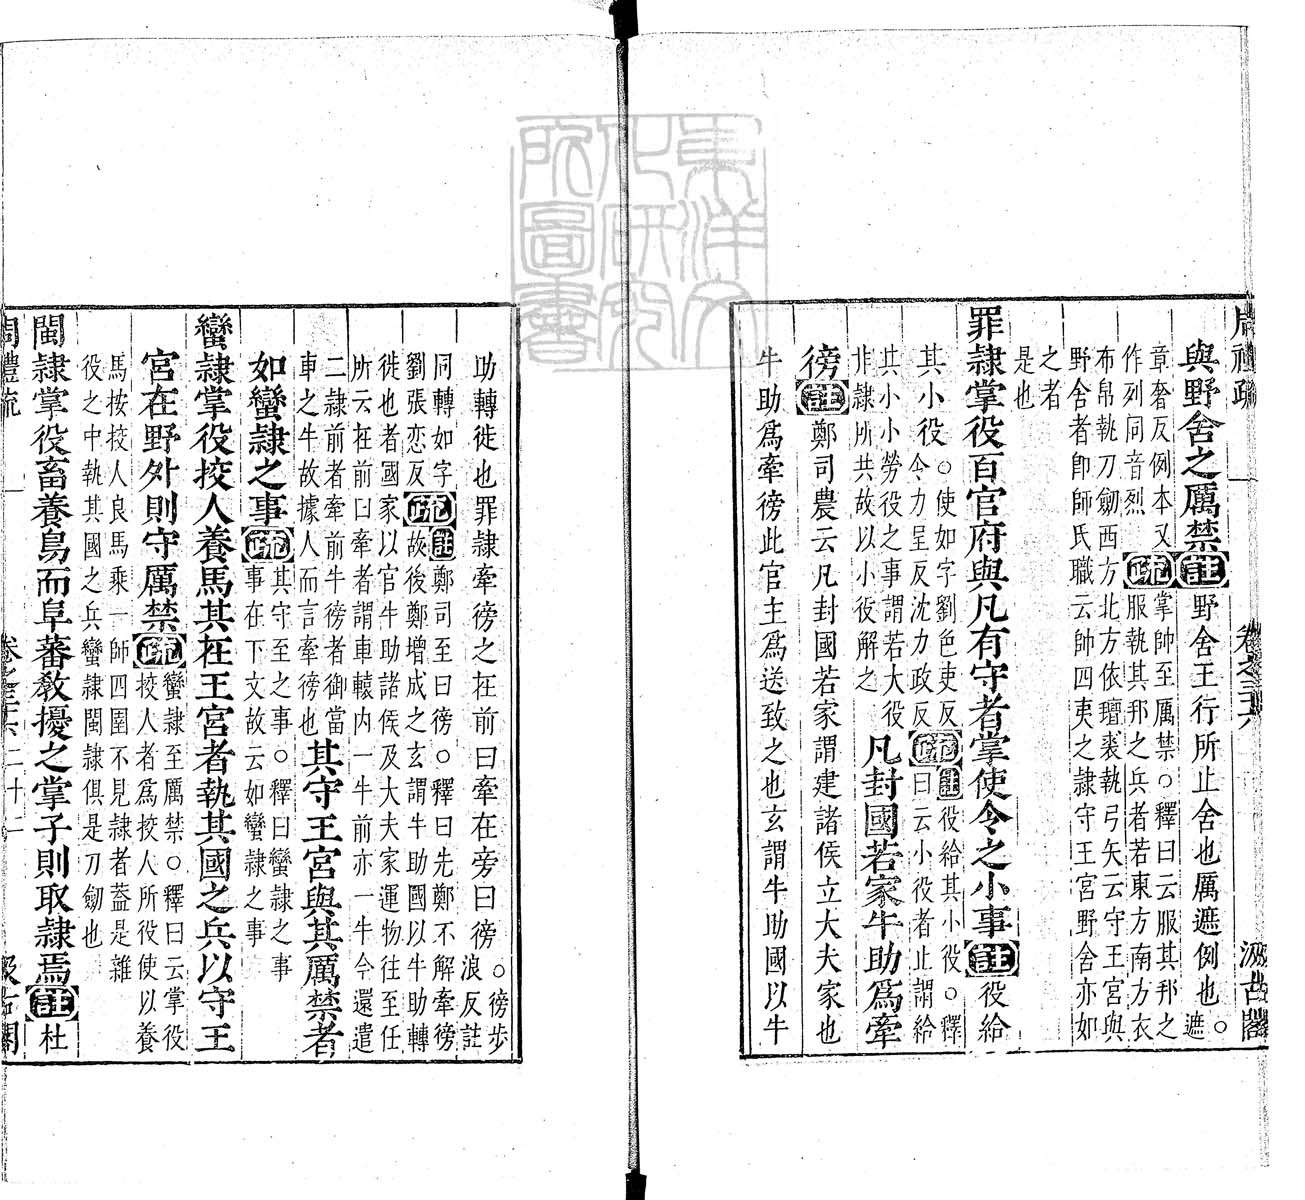 周禮疏 卷之三十六 汲古閣
與野舍之厲禁註野舍王行所止舍也厲遮例也○遮
章奢反例本又
作列同音烈疏掌帥至厲禁○釋曰云服其邦之
服執其邦之兵者若東方南方衣
布帛執刀劒西方北方依氊裘執弓矢云守王宮與
野舍者卽師氏職云帥四夷之隸守王宮野舍亦如
之者
是也
罪隸掌役百官府與凡有守者掌使令之小事註役給
其小役○使如字劉色吏反
令力呈反沈力政反疏註役給其小役○釋
曰云小役者止謂給
其小小勞役之事謂若大役
非隸所共故以小役解之凡封國若家牛助爲牽
徬註鄭司農云凡封國若家謂建諸侯立大夫家也
牛助爲牽徬此官主爲送致之也玄謂牛助國以牛
助轉徙也罪隸牽徬之在前曰牽在旁曰徬○徬步
浪反註
同轉如字
劉張恋反疏註鄭司至曰徬○釋曰先鄭不解牽徬
故後鄭增成之玄謂牛助國以牛助轉
徙也者國家以官牛助諸侯及大夫家運物往至任
所云在前曰牽者謂車轅内一牛前亦一牛今還遣
二隸前者牽前牛徬者御當
車之牛故據人而言牽徬也其守王宮與其厲禁者
如蠻隸之事疏其守至之事○釋曰蠻隸之事
事在下文故云如蠻隸之事
蠻隸掌役挍人養馬其在王宮者執其國之兵以守王
宮在野外則守厲禁疏蠻隸至厲禁○釋曰云掌役
挍人者爲挍人所役使以養
馬按挍人良馬乘一師四圉不見隸者葢是雜
役之中執其國之兵蠻隸閩隸俱是刀劒也
閩隸掌役畜養鳥而阜蕃敎擾之掌子則取隸焉註杜
周禮疏 卷之三十六 二十二 汲古閣